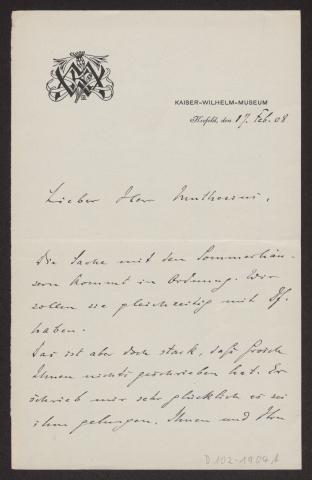 KAISER-WILHELM-MUSEUM
Krefeld, den 17. Feb. 08
Lieber Herr Muthesius,
Die Sache mit den Sommerhäu-
sern kommt in Ordnung. Wir
sollen sie gleichzeitig mit Df.
haben.
Das ist aber doch stark, daß Grosch
Ihnen nichts geschrieben hat. Er
schrieb mir sehr glücklich es sei
ihm gelungen, Ihnen und Hrn
D 102-1904